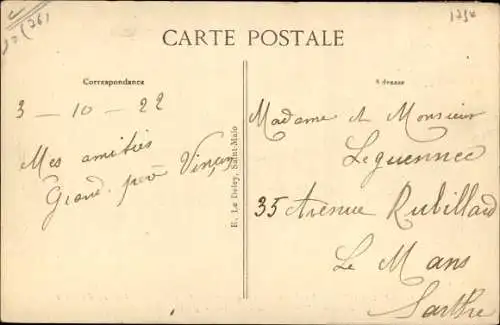 (26)
1234
CARTE POSTALE
Correspondance
Adresse
3 - 10 - 22
Mes amitiés
Grand père Vincen
E. Le Deley, Saint-Malo
Madame et Monsieur
Leguennec
35 Avenue Rubillard
Le Mans
Sarthe